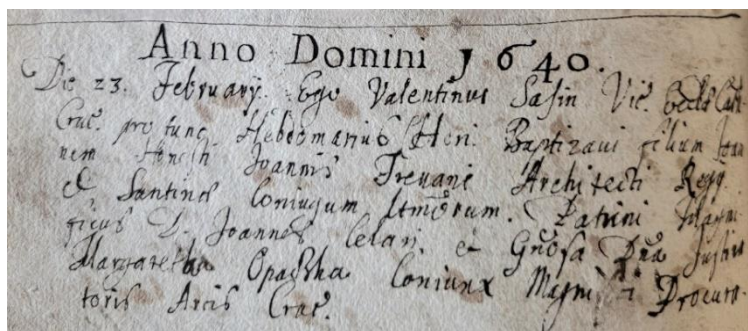 Anno Domini 1640.
Die 23. February. Ego Valentinus Sasin Vic. Eccle Cath
Crac. pro tunc Hebdomarius Heri. Baptizavi filium Ioan
nem Honesti Joannis Trevani Architecti Regy.
& Santinos Coniugum ltmorum. Patrini Magni
ficus D. Joannes Celari & Gnosa Dna Justina
Margaretha Opacka Coniunx Magni Procura
toris Arcis Crac.